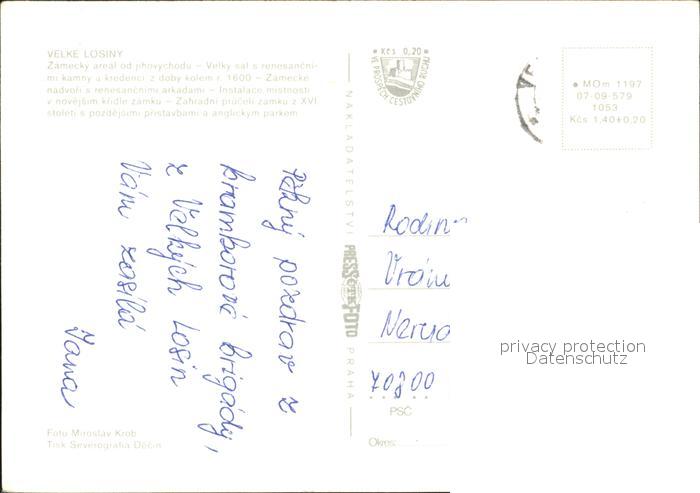 VELKÉ LOSINY
Zámecký areál od jihovýchodu – Velký sál s renesanční-
mi kamny a kredencí z doby kolem r. 1600 – Zámecké
nádvoří s renesančními arkádami – Instalace místnosti
v novějším křídle zámku – Zahradní průčelí zámku z XVI.
století s pozdějšími přístavbami a anglickým parkem
Pěkný pozdrav z
bramborové brigády,
z Velkých Losin
Vám zasílá
Jana
Foto Miroslav Krob
Tisk Severografia Děčín
NAKLADATELSTVÍ
PRESSFOTO
PRAHA
Kčs 0,20
CESTOVNÍHO RUCHU
MOm 1197
07-09-579
1053
Kčs 1,40+0,20
Rodin
Vrán
Neru
70800
PSČ
Okres:
privacy protection
Datenschutz